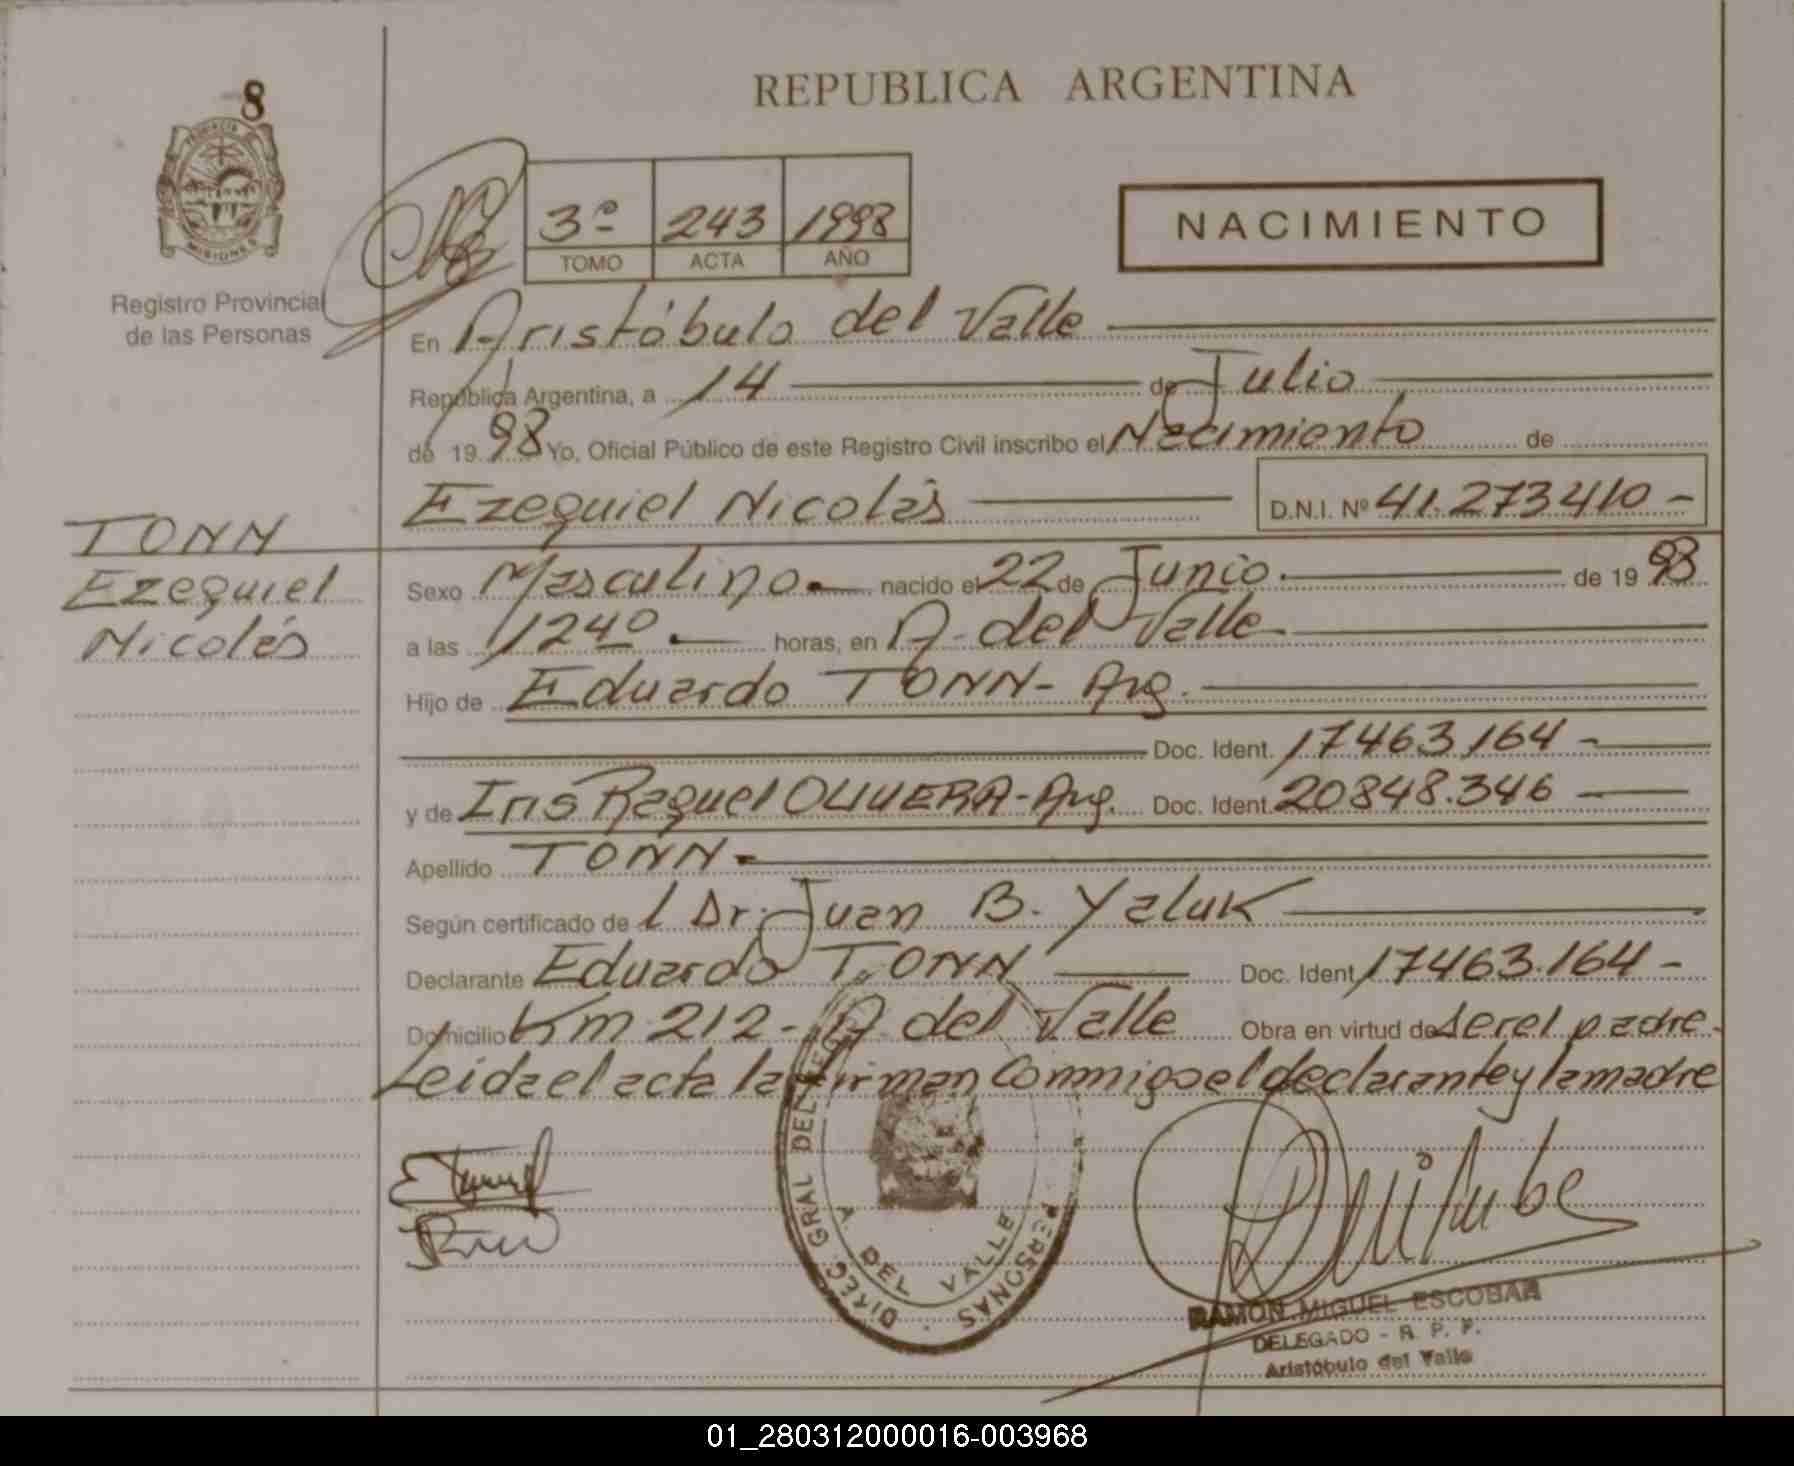 8
REPUBLICA ARGENTINA
PROVINCIA
MISIONES
Registro Provincial
de las Personas
3º 243 1998
TOMO ACTA AÑO
NACIMIENTO
En Aristóbulo del Valle
República Argentina, a 14 de Julio
de 19 98 Yo, Oficial Público de este Registro Civil inscribo el Nacimiento de
Ezequiel Nicolás D.N.I. Nº 41.273410-
TONN
Ezequiel
Nicolás
Sexo Masculino. nacido el 22 de Junio. de 19 98
a las 12 40. horas, en A. del Valle
Hijo de Eduardo TONN- Arg.
Doc. Ident. 17463.164-
y de Iris Raquel OLIVERA-Arg. Doc. Ident. 20848.346
Apellido TONN-
Según certificado de l Dr. Juan B. Yaluk
Declarante Eduardo TONN Doc. Ident 17463.164-
Domicilio Km 212- A del Valle Obra en virtud de ser el padre.
Leida el acta la firman conmigo el declarante y la madre
DIREC. GRAL DEL PERSONAS
A DEL VALLE
RAMON MIGUEL ESCOBAR
DELEGADO - R. P. P.
Aristóbulo del Valle
01_280312000016-003968